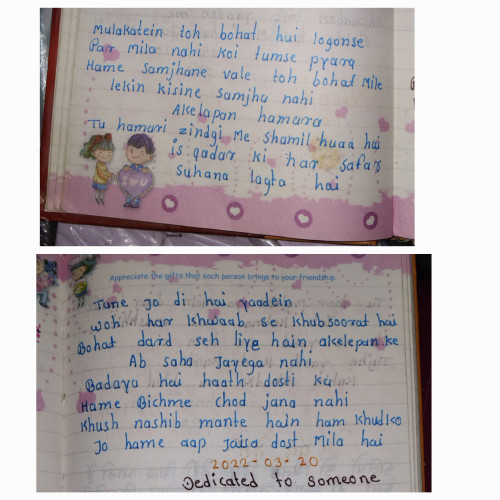 Mulakatein toh bohat hui logonse
Par mila nahi koi tumse pyara
Hame samjhane vale toh bohat Mile
lekin kisine samjha nahi
Akelapan hamara
Tu hamari zindgi Me shamil huaa hai
is qadar ki har safar
suhana lagta hai
I ♥ U
Appreciate the gifts that each person brings to your friendship.
Tune jo di hai yaadein
woh har khwaab se khubsoorat hai
Bohat dard seh liye hain akelepan ke
Ab saha Jayega nahi
Badaya hai haath dosti ka
Hame Bichme chod jana nahi
Khush nashib mante hain ham khudko
Jo hame aap Jaisa dost Mila hai
2022-03-20
Dedicated to someone